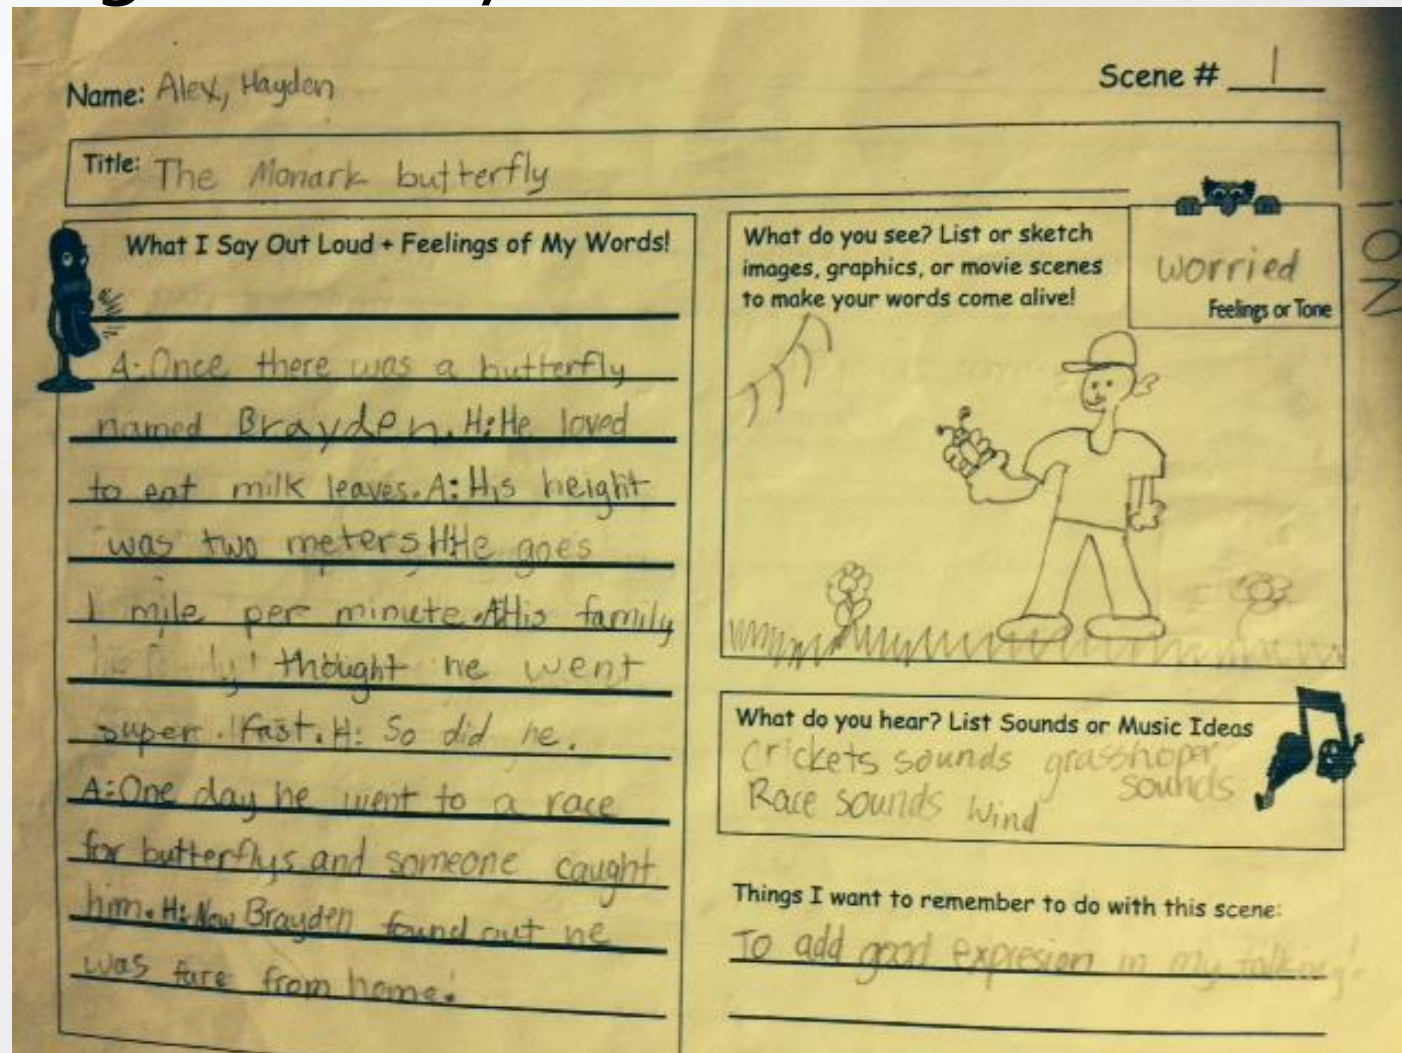 Name: Alex, Hayden
Scene # 1
Title: The Monark butterfly
What I Say Out Loud + Feelings of My Words!
A: Once there was a butterfly
named Brayden. H: He loved
to eat milk leaves. A: His height
was two meters H: He goes
1 mile per minute. A: His family
thought he went
super fast. H: So did he.
A: One day he went to a race
for butterflys and someone caught
him. H: Now Brayden found out he
was fare from home!
What do you see? List or sketch
images, graphics, or movie scenes
to make your words come alive!
worried
Feelings or Tone
What do you hear? List Sounds or Music Ideas
Crickets sounds grasshoper
sounds
Race sounds Wind
Things I want to remember to do with this scene:
To add good expresion in my talking!